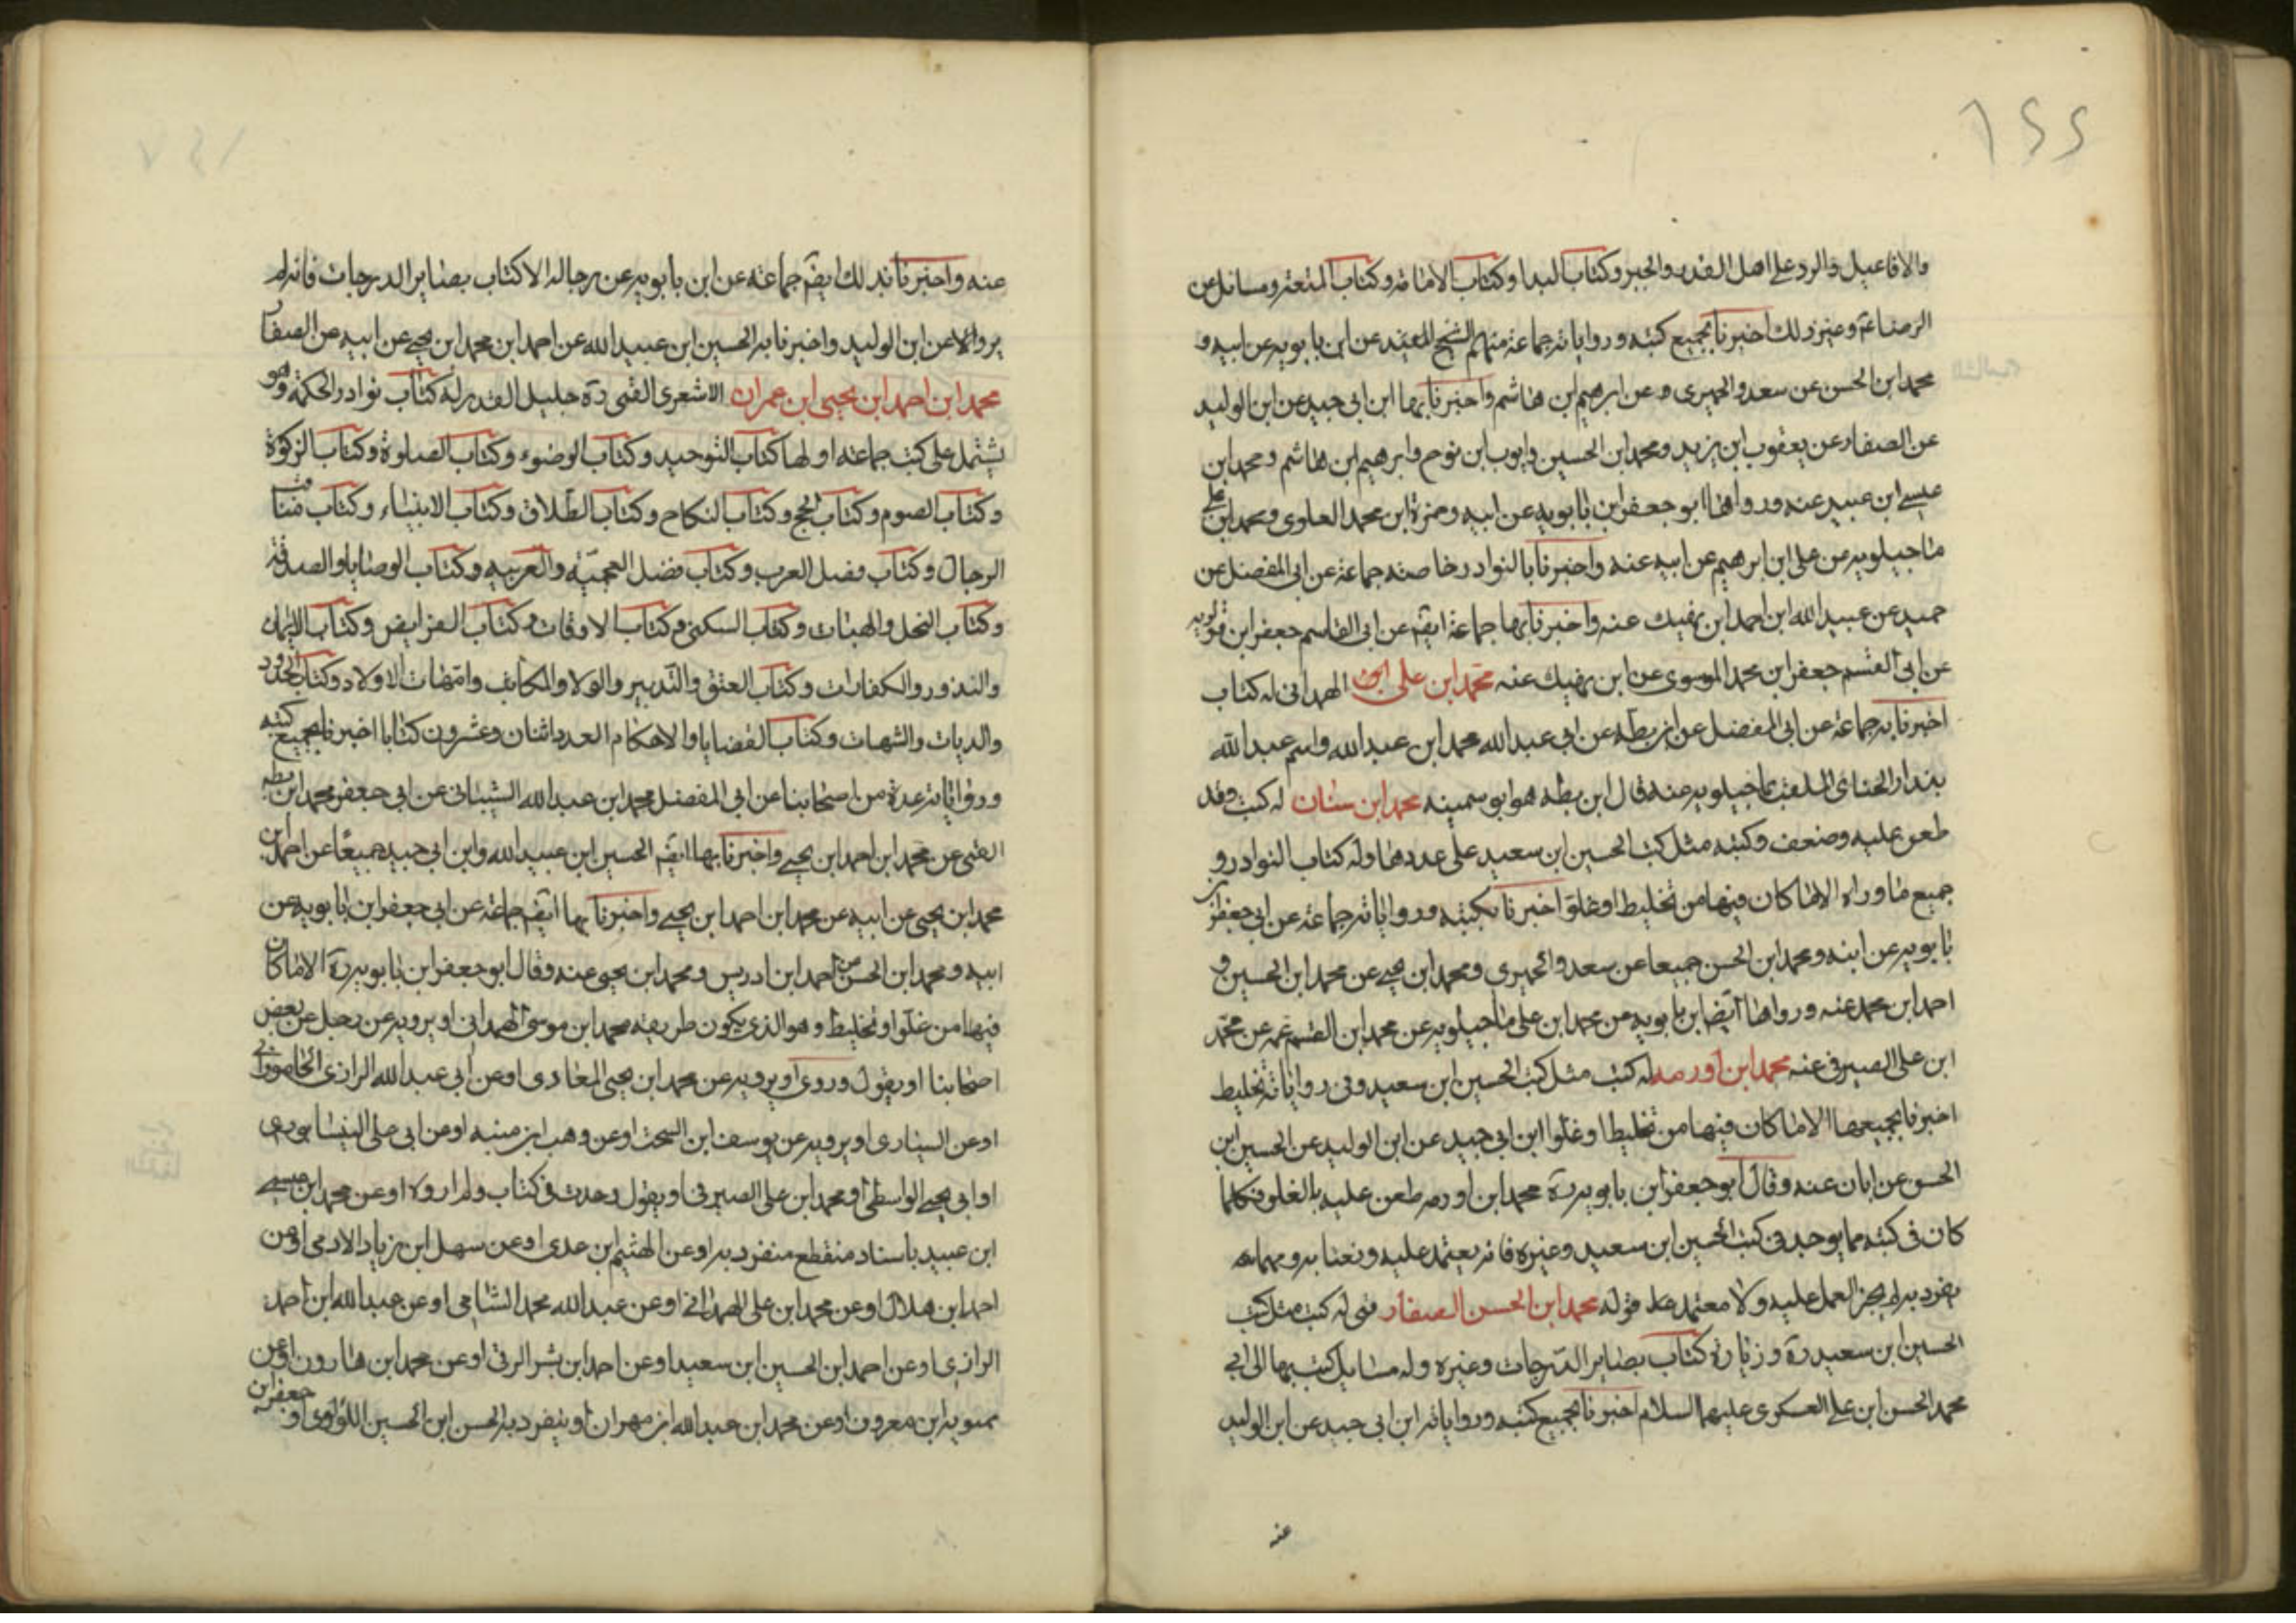 والافاعيل والرد على اهل القدر والجبر وكتاب البدا وكتاب الامامة وكتاب المتعة ومسائل عن
الرضا ع وغير ذلك اخبرنا بجميع كتبه ورواياته جماعة منهم الشيخ المفيد عن ابن بابويه عن ابيه و
محمد ابن الحسن عن سعد والحميرى وعن ابرهيم بن هاشم واخبرنا بها ابن ابى جيد عن ابن الوليد
عن الصفار عن يعقوب ابن يزيد ومحمد ابن الحسين وايوب ابن نوح وابرهيم ابن هاشم ومحمد ابن
عيسى ابن عبيد عنه ورواها ابو جعفر ابن بابويه عن ابيه وحمزة ابن محمد العلوى ومحمد ابن على
ماجيلويه عن على ابن ابرهيم عن ابيه عنه واخبرنا بالنوادر خاصته جماعة عن ابى المفضل عن
حميد عن عبيد الله ابن احمد ابن نهيك عنه واخبرنا بها جماعة ايضم عن ابى القاسم جعفر ابن قولويه
عن ابى القسم جعفر ابن محمد الموسوى عن ابن نهيك عنه محمد ابن على الهمدانى له كتاب
اخبرنا به جماعة عن ابى المفضل عن ابن بطه عن ابى عبد الله محمد ابن عبد الله واسم عبد الله
بندار الملقب ماجيلويه عنه قال ابن بطه هو ابو سمينه محمد ابن سنان له كتب وقد
طعن عليه وضعف وكتبه مثل كتب الحسين ابن سعيد على عددها وله كتاب النوادر و
جميع ما وراه الا ما كان فيها من تخليط او غلو اخبرنا بكتبه ورواياته جماعة عن ابى جعفر ابن
بابويه عن ابنه ومحمد ابن الحسن جميعا عن سعد والحميرى ومحمد ابن يحيى عن محمد ابن الحسين و
احمد ابن محمد عنه ورواها ايضا ابن بابويه عن محمد ابن على ماجيلويه عن محمد ابن القسم عمه عن محمد
ابن على الصيرفى عنه محمد ابن اورمه له كتب مثل كتب الحسين ابن سعيد وفى رواياته تخليط
اخبرنا بجميعها الا ما كان فيها من تخليط او غلوا ابن ابى جيد عن ابن الوليد عن الحسين ابن
الحسن عن ابان عنه وقال ابو جعفر ابن بابويه ره محمد ابن اورمه طعن عليه بالغلو فكلما
كان فى كتبه مما يوجد فى كتب الحسين ابن سعيد وغيره فانه يعتمد عليه
تفرد به لم يجز العمل عليه ولا معتمد قوله محمد ابن الحسن الصفار قمى له كتب مثل كتب
الحسين ابن سعيد ره وزيارة كتاب بصاير الدرجات وغيره وله مسايل كتب بها الى ابى
محمد الحسن ابن على العسكرى عليهما السلام اخبرنا بجميع كتبه ورواياته ابن ابى جيد عن ابن الوليد
عنه
عنه واخبرنا بذلك ايضم جماعة عن ابن بابويه عن رجاله الا كتاب بصاير الدرجات فانه لم
يرو الا عن ابن الوليد واخبرنا به الحسين ابن عبيد الله عن احمد ابن محمد ابن يحيى عن ابيه عن الصفار
محمد ابن احمد ابن يحيى ابن عمران الاشعرى القمى ره جليل القدر له كتاب نوادر الحكمة وهو
يشتمل على كتب جماعته اولها كتاب التوحيد وكتاب الوضوء وكتاب الصلوة وكتاب الزكوة
وكتاب الصوم وكتاب الحج وكتاب النكاح وكتاب الطلاق وكتاب الانبياء وكتاب مناقب
الرجال وكتاب فضل العرب وكتاب فضل العجميّة والعربيه وكتاب الوصايا والصدقة
وكتاب النحل والهبات وكتاب السكنى وكتاب الاوقات وكتاب الفرايض وكتاب الايمان
والنذور والكفارات وكتاب العتق والتدبير والولا والمكاتب وامهات الاولاد وكتاب الحدود
والديات والشهات وكتاب القضايا والاحكام العدد اثنان وعشرون كتابا اخبرنا بجميع كتبه
ورواياته عدة من اصحابنا عن ابى المفضل محمد ابن عبد الله الشيبانى عن ابى جعفر محمد ابن بطه
القمى عن محمد ابن احمد ابن يحيى واخبرنا بها ايضم الحسين ابن عبيد الله وابن ابى جيد جميعًا عن احمد ابن
محمد ابن يحيى عن ابيه عن محمد ابن احمد ابن يحيى واخبرنا بها ايضم جماعة عن ابى جعفر ابن بابويه عن
ابيه ومحمد ابن الحسن عن احمد ابن ادريس ومحمد ابن يحيى عنه وقال ابو جعفر ابن بابويه ره الا ما كان
فيها من غلو او تخليط وهو الذى يكون طريقه محمد ابن موسى الهمدانى او يرويه عن رجل عن بعض
اصحابنا او يقول وروى او يرويه عن محمد ابن يحيى المعاذى او عن ابى عبد الله الرازى الجامورانى
او عن السيارى او يرويه عن يوسف ابن السخت او عن وهب ابن منبه او عن ابى على النيسابورى
او ابى يحيى الواسطى او محمد ابن على الصيرفى او يقول وجدت فى كتاب ولم اروه او عن محمد ابن عيسى
ابن عبيد باسناد منقطع منفرد به او عن الهثيم ابن عدى او عن سهل ابن زياد الادمى او عن
احمد ابن هلال او عن محمد ابن على الهمدانى او عن عبد الله محمد الشامى او عن عبد الله ابن احمد
الرازى او عن احمد ابن الحسين ابن سعيد او عن احمد ابن بشر الرقى او عن محمد ابن هارون او عن
ممويه ابن معروف او عن محمد ابن عبد الله ابن مهران او ينفرد به الحسن ابن الحسين اللؤلؤى او جعفر ابن